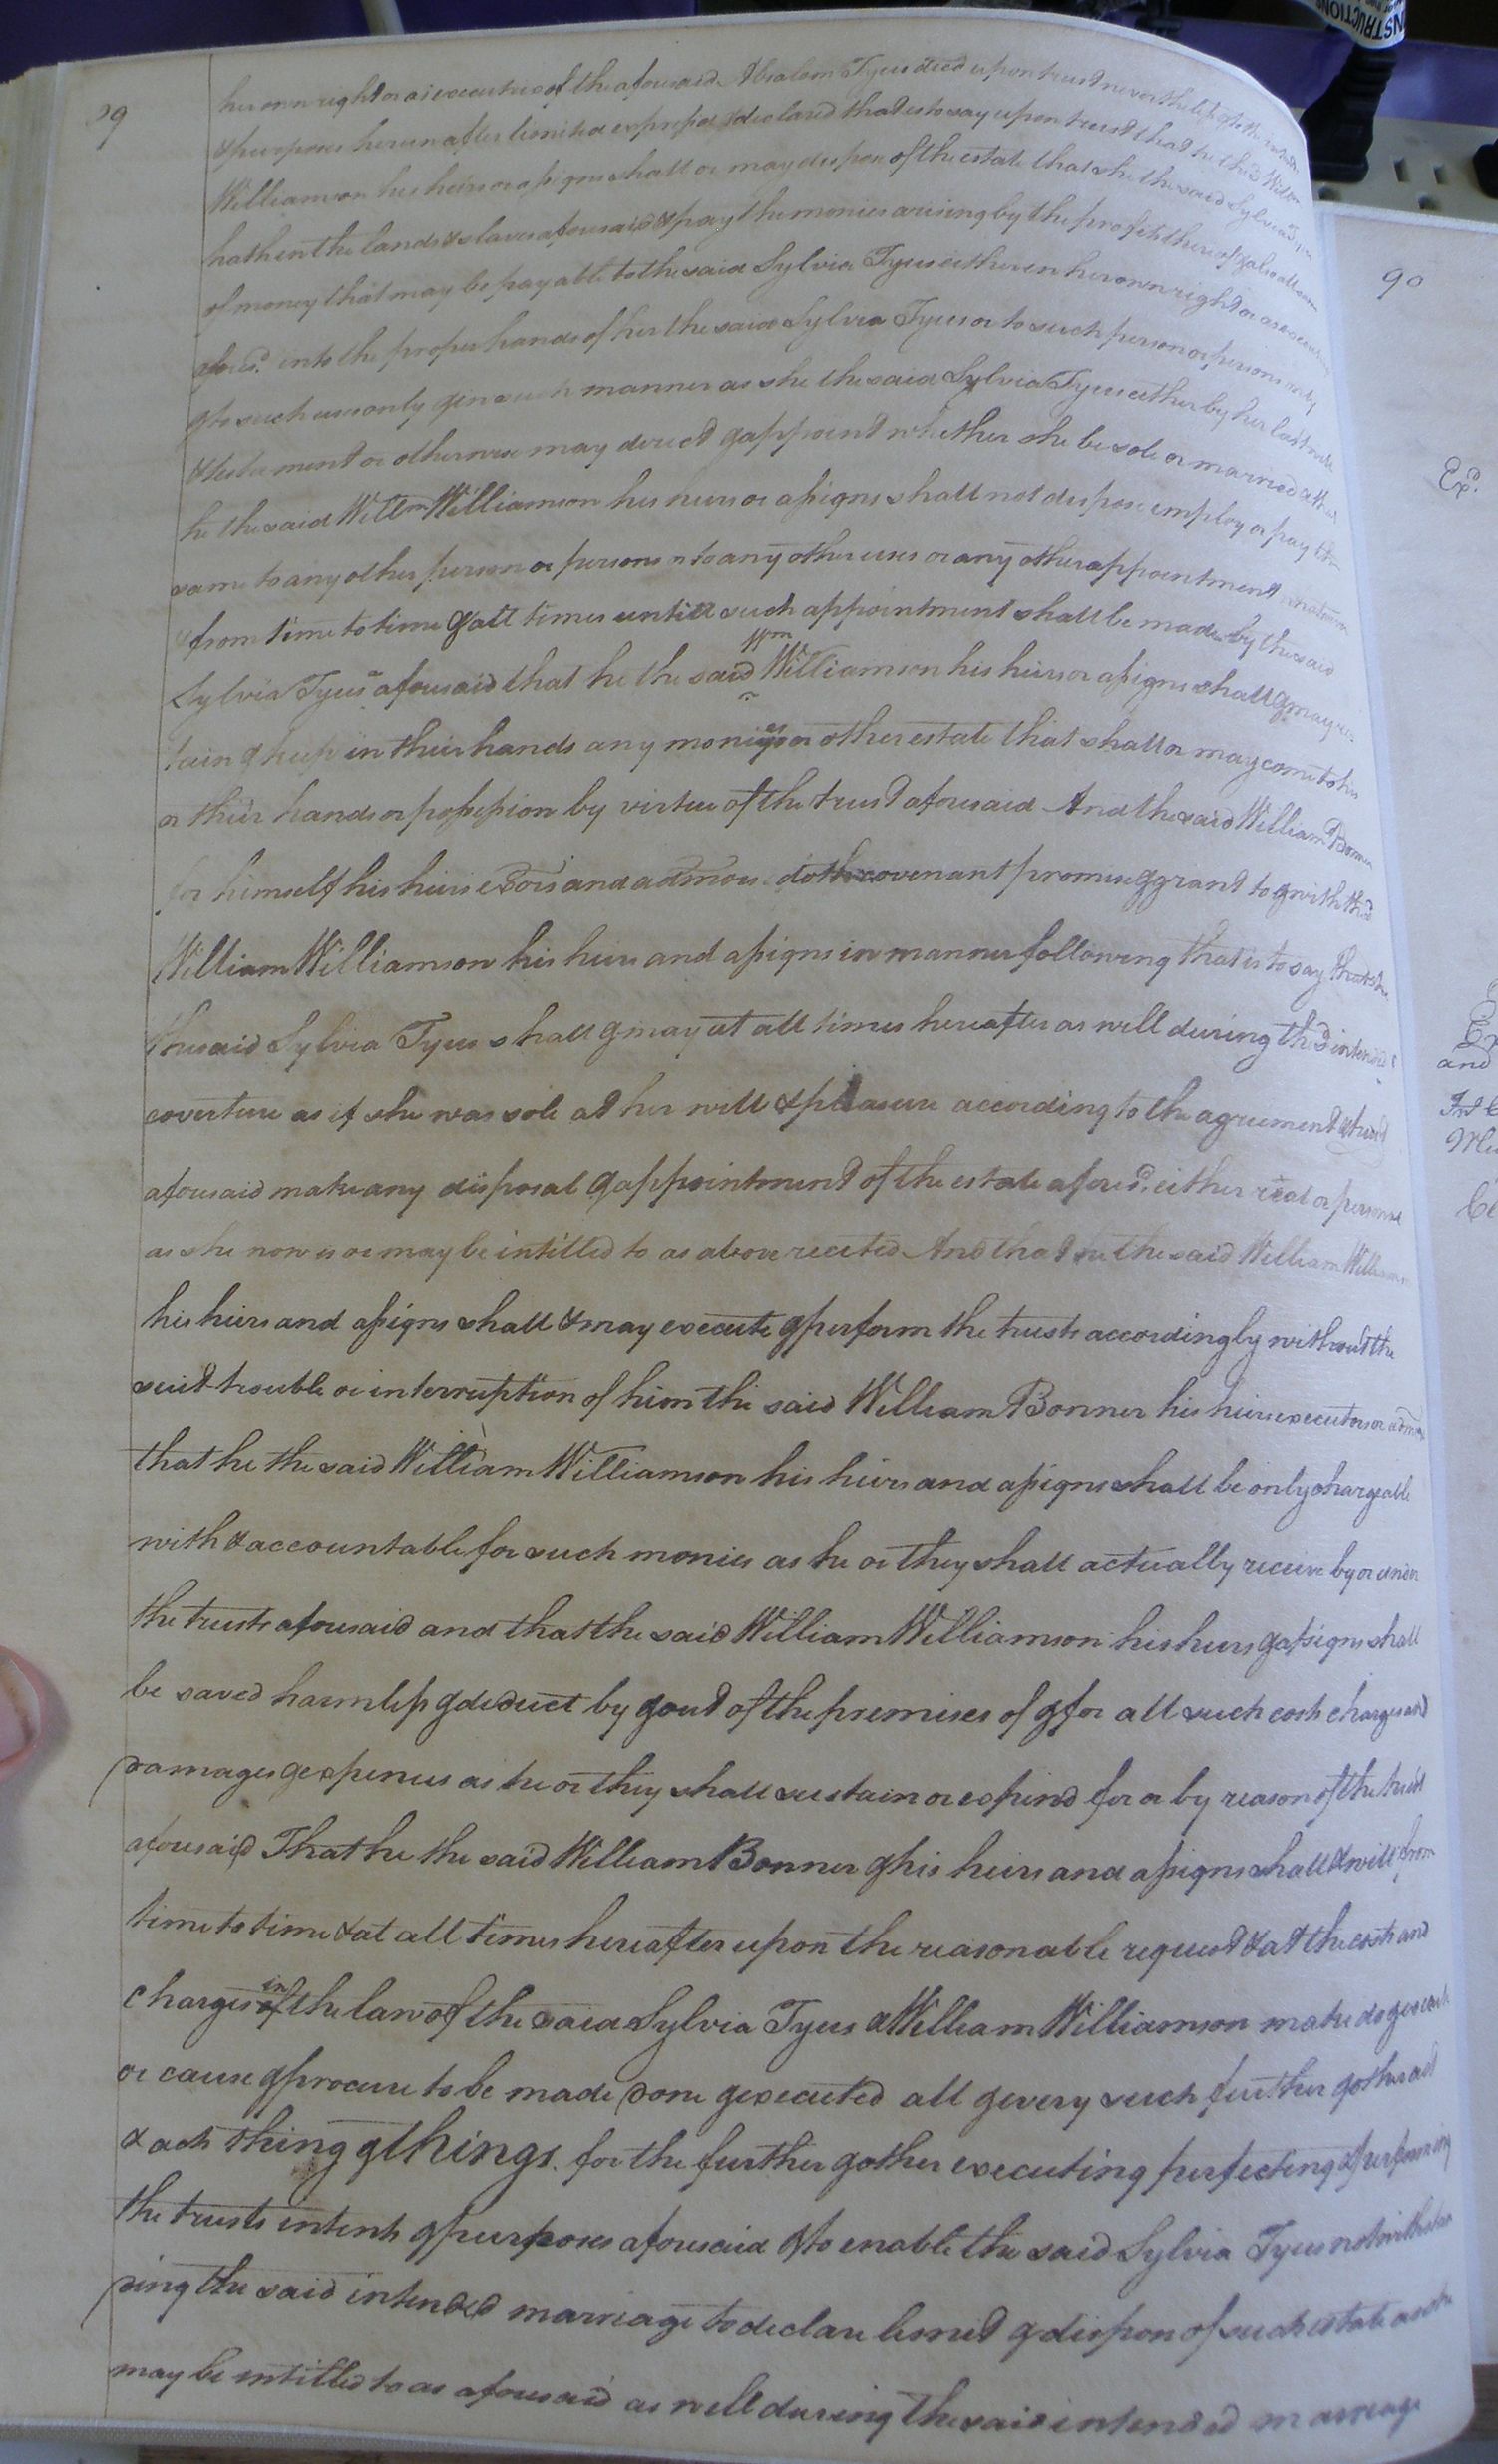 INSTRUCTIONS
89
her own right or as executrix of the aforesaid Absalom Tyus deced upon trust nevertheless to the intents
& purposes hereinafter limited expressed & declared that is to say upon trust that he the sd Willm
Williamson his heirs or assigns shall or may dispose of the estate that she the said Sylvia
hath in the lands & slaves aforesaid & pay the monies arising by the profits thereof & also all sums
of money that may be payable to the said Sylvia Tyus either in her own right or as executrix
afores.d into the proper hands of her the said Sylvia Tyus or to such person or persons only
& to such uses only & in such manner as she the said Sylvia Tyus either by her last will
& testament or otherwise may direct & appoint whether she be sole or married & that
he the said Willm Williamson his heirs or assigns shall not dispose employ or pay the
same to any other person or persons or to any other uses or any other appointment whatsoever
& from time to time & att times untill such appointment shall be made by the said
Sylvia Tyus aforesaid that he the said Wm Williamson his heirs or assigns shall & may re
tain & keep in their hands any monies or other estate that shall or may come to his
or their hands or possession by virtue of the trust aforesaid And the said William Bonner
for himself his heirs exors and admors doth covenant promise & grant to & with the sd
William Williamson his heirs and assigns in manner following that is to say that she
the said Sylvia Tyus shall & may at all times hereafter as well during the sd intended
coverture as if she was sole at her will & pleasure according to the agreement & trust
aforesaid make any disposal & appointment of the estate afores.d either real or personal
as she now is or may be intitled to as above recited And that he the said William Williamson
his heirs and assigns shall & may execute & perform the trusts accordingly without the
suit trouble or interruption of him the said William Bonner his heirs executors or admrs
that he the said William Williamson his heirs and assigns shall be only chargeable
with & accountable for such monies as he or they shall actually receive by or under
the trusts aforesaid and that the said William Williamson his heirs & assigns shall
be saved harmless & deduct by & out of the premises of & for all such costs charges and
damages & expences as he or they shall sustain or expend for or by reason of the trust
aforesaid That he the said William Bonner & his heirs and assigns shall & will from
time to time & at all times hereafter upon the reasonable request & at the costs and
charges in the law of the said Sylvia Tyus & William Williamson make do & execute
or cause & procure to be made done & executed all & every such further & other act
& acts thing & things for the further & other executing perfecting & performing
the trusts intents & purposes aforesaid & to enable the said Sylvia Tyus notwithstan
ding the said intended marriage to declare limit & dispose of such estate as she
may be intitled to as aforesaid as well during the said intended marriage
90
Exd.
and